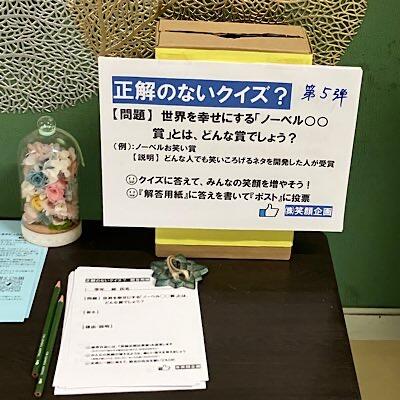 正解のないクイズ? 第5弾
【問題】 世界を幸せにする「ノーベル○○
賞」とは、どんな賞でしょう?
(例):ノーベルお笑い賞
【説明】 どんな人でも笑いころげるネタを開発した人が受賞
クイズに答えて、みんなの笑顔を増やそう!
『解答用紙』に答えを書いて『ポスト』に投票
㈱笑顔企画
正解のないクイズ?
【問題】 世界を幸せにする「ノーベル○○賞」とは、
どんな賞でしょう?